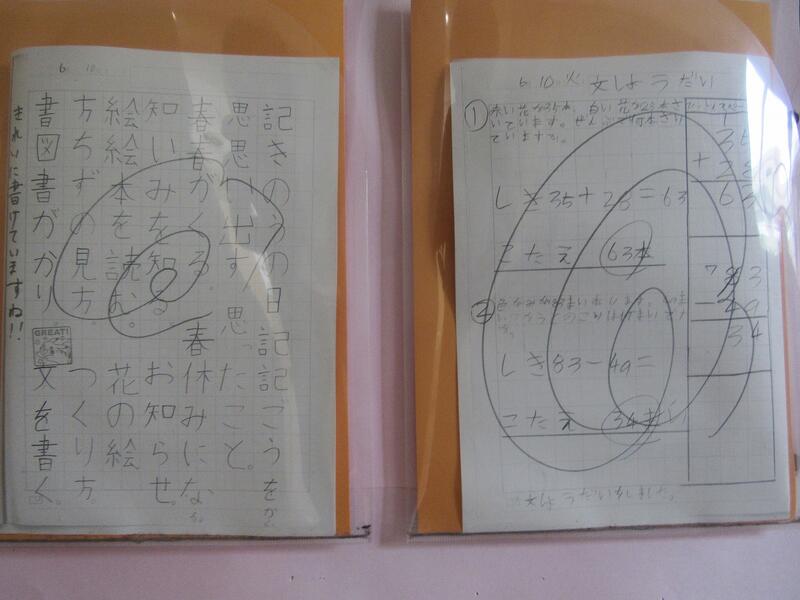 6 10
記きのうの日記 記ごうをかく
思思い出す。思ったこと。
春春がくる。春休みになる。
知いみを知る。お知らせ。
絵絵本を読む。花の絵
方ちずの見方。つくり方。
書図書がかり 文を書く。
きれいに書けていますね!!
GREAT!
6 10 火 文しょうだい
① 赤い花が35本、白い花が28本さ
いています。ぜんぶで何本さい
ていますか。
しき35+28=63
こたえ 63本
②
しき83-49=
こたえ 34まい
35
+28
63
83
-49
34
文しょうだいをしました。